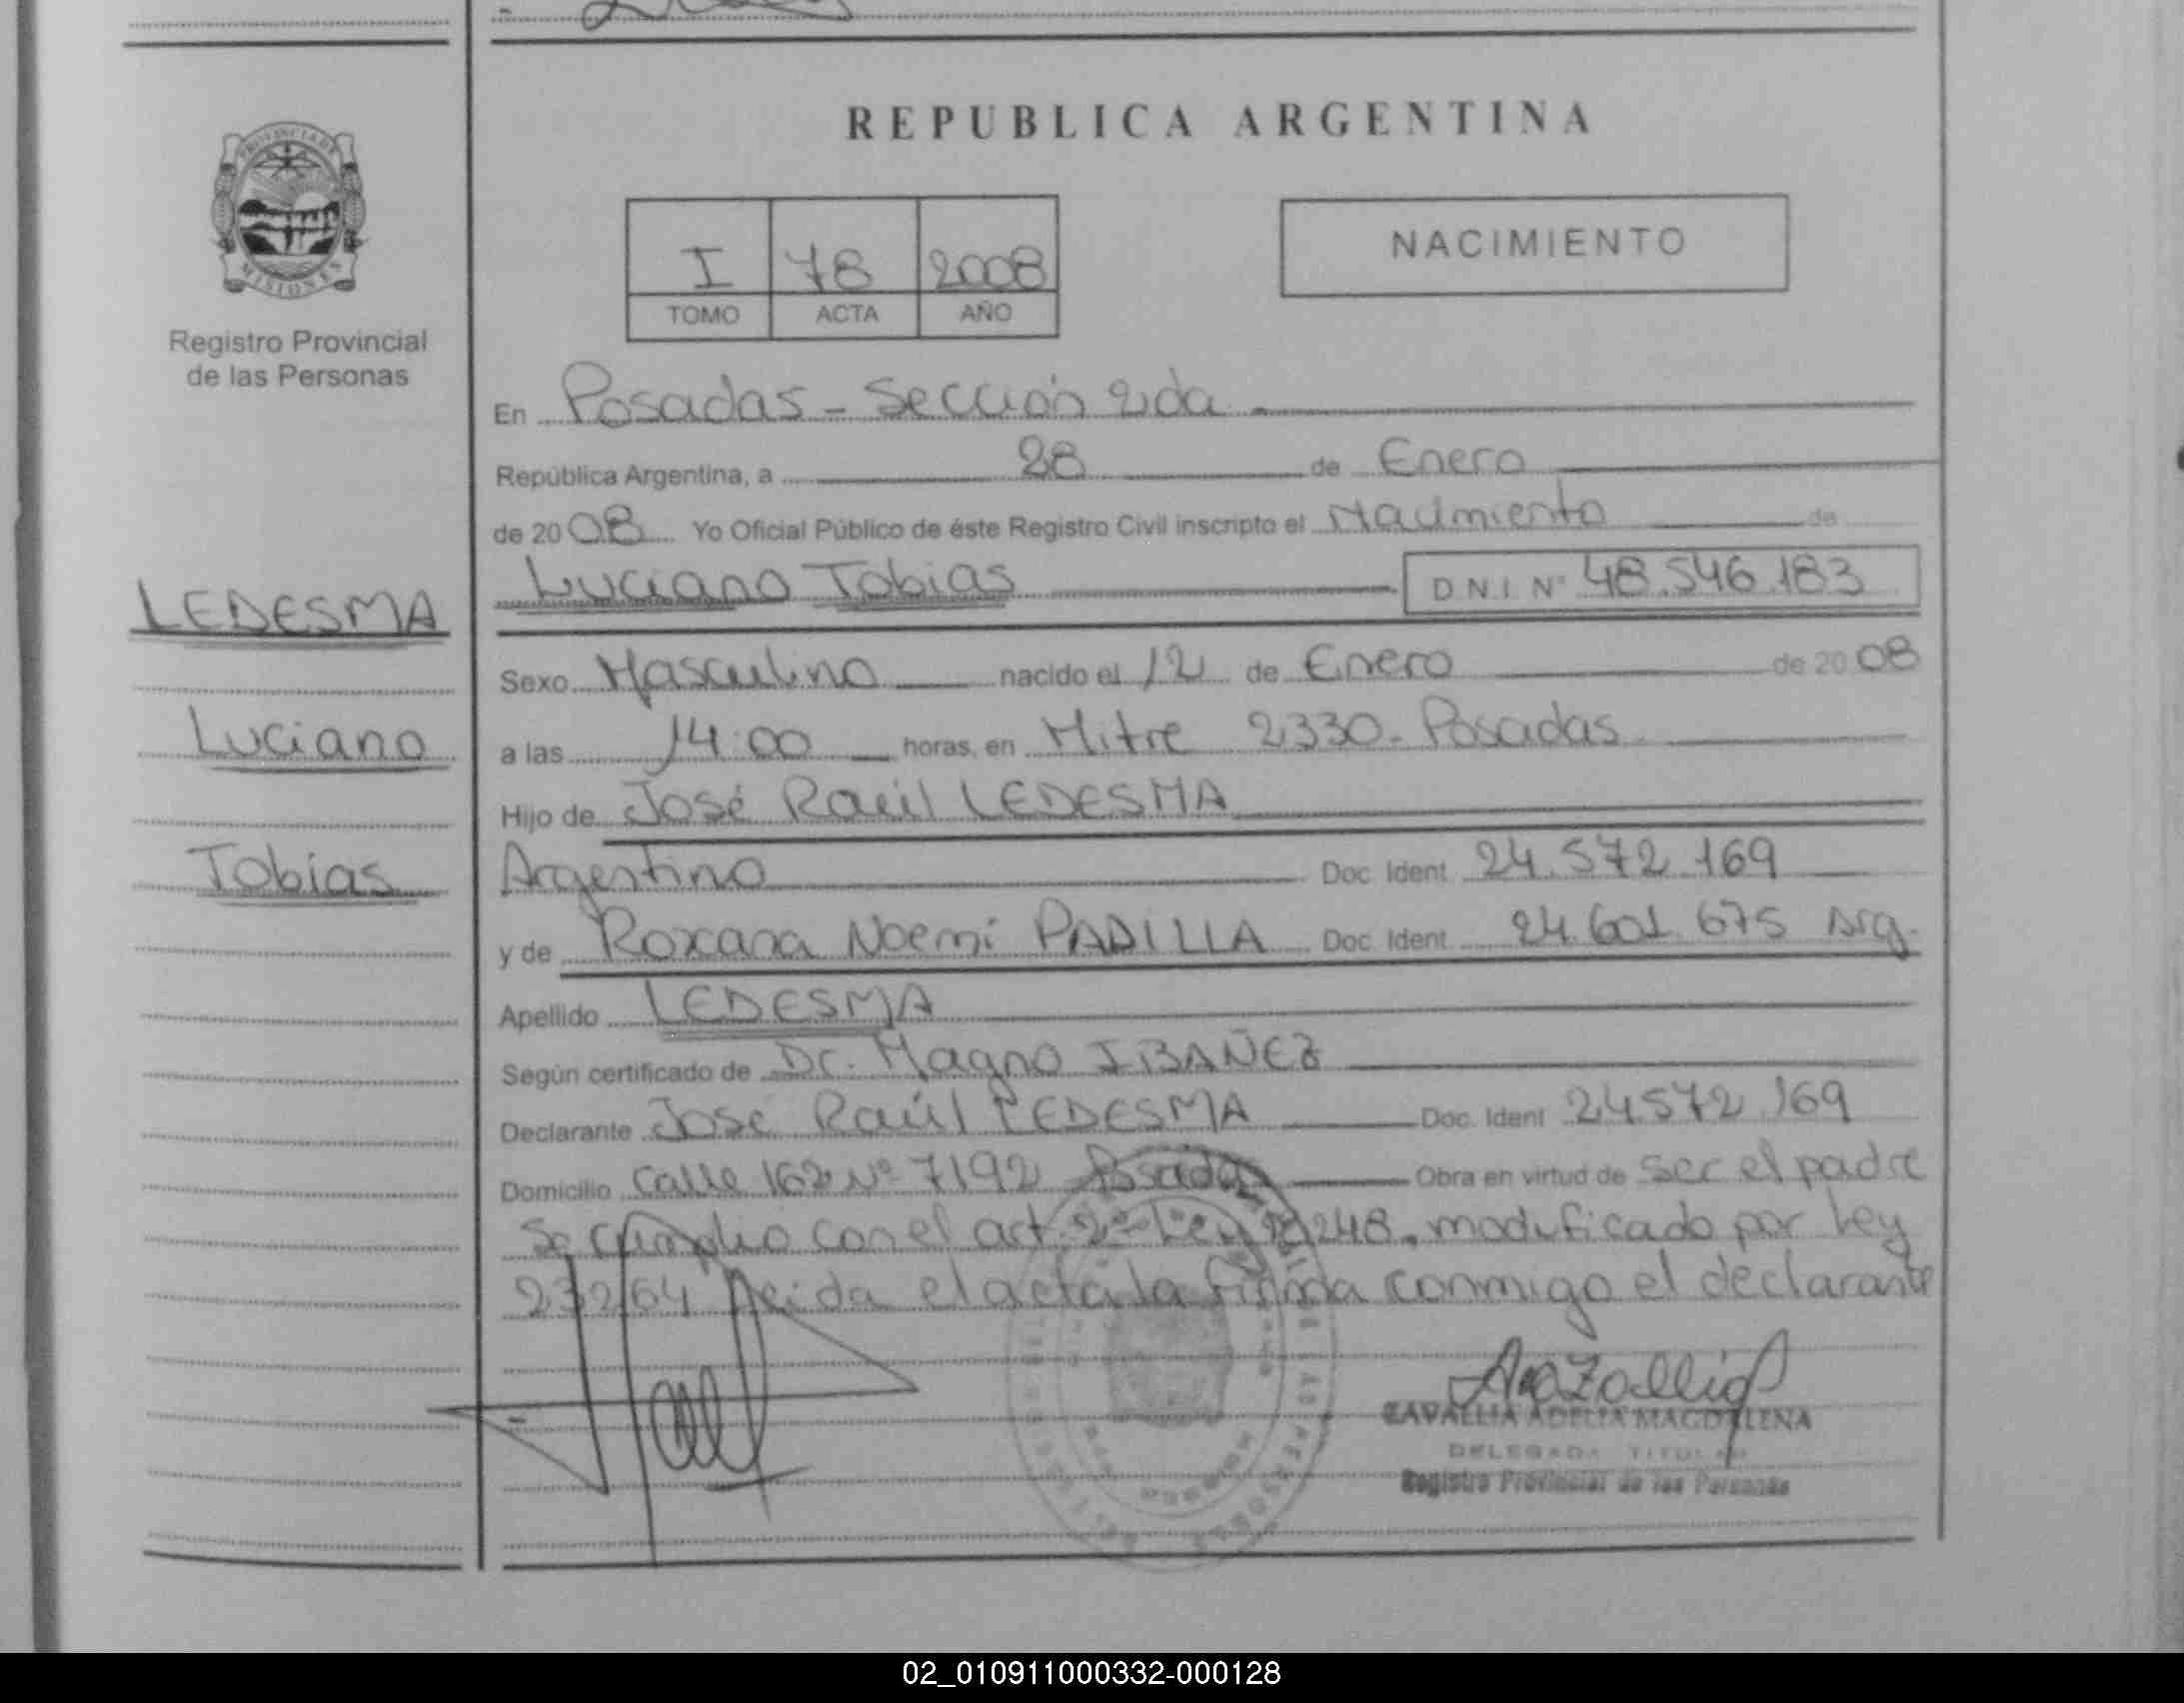 REPUBLICA ARGENTINA
PROVINCIA DE
MISIONES
Registro Provincial
de las Personas
I 78 2008
TOMO ACTA AÑO
NACIMIENTO
En Posadas - Sección 2da
República Argentina, a 28 de Enero
de 2008 Yo Oficial Público de éste Registro Civil inscripto el Nacimiento de
Luciano Tobias D N I N° 48.546.183
LEDESMA
Luciano
Tobias
Sexo Masculino nacido el 12 de Enero de 2008
a las 14:00 horas, en Mitre 2330 - Posadas
Hijo de José Raúl LEDESMA
Argentino Doc. Ident. 24.572.169
y de Roxana Noemi PADILLA Doc. Ident. 24.601.675 Arg.
Apellido LEDESMA
Según certificado de Dr. Magno IBAÑEZ
Declarante José Raúl LEDESMA Doc. Ident. 24.572.169
Domicilio Calle 162 Nº 7192 Posadas Obra en virtud de ser el padre
Se cumplio con el art. 2º Ley 18248, modificado por Ley
23264 Leida el acta la firma conmigo el declarante
ZAVALLIA ADELIA MAGDALENA
DELEGADA TITULAR
Registro Provincial de las Personas
02_010911000332-000128